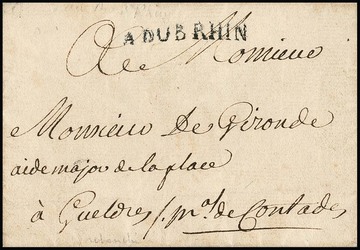 A DU B RHIN
A Monsieur
Monsieur De Gironde
aide major de la place
à Gueldres /. m.al de Contades